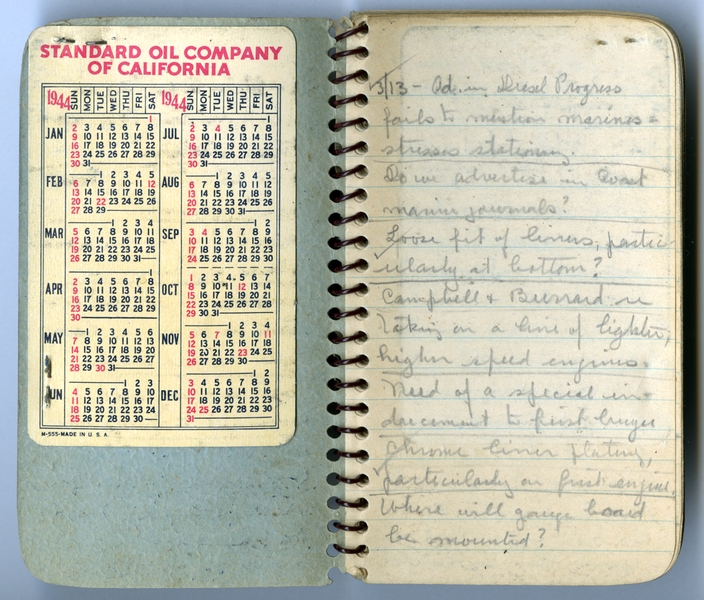 STANDARD OIL COMPANY
OF CALIFORNIA
1944 SUN MON TUE WED THU FRI SAT
JAN
1
2 3 4 5 6 7 8
9 10 11 12 13 14 15
16 17 18 19 20 21 22
23 24 25 26 27 28 29
30 31
FEB
1 2 3 4 5
6 7 8 9 10 11 12
13 14 15 16 17 18 19
20 21 22 23 24 25 26
27 28 29
MAR
1 2 3 4
5 6 7 8 9 10 11
12 13 14 15 16 17 18
19 20 21 22 23 24 25
26 27 28 29 30 31
APR
1
2 3 4 5 6 7 8
9 10 11 12 13 14 15
16 17 18 19 20 21 22
23 24 25 26 27 28 29
30
MAY
1 2 3 4 5 6
7 8 9 10 11 12 13
14 15 16 17 18 19 20
21 22 23 24 25 26 27
28 29 30 31
UN
1 2 3
4 5 6 7 8 9 10
11 12 13 14 15 16 17
18 19 20 21 22 23 24
25 26 27 28 29 30
1944 SUN MON TUE WED THU FRI SAT
JUL
1
2 3 4 5 6 7 8
9 10 11 12 13 14 15
16 17 18 19 20 21 22
23 24 25 26 27 28 29
30 31
AUG
1 2 3 4 5
6 7 8 9 10 11 12
13 14 15 16 17 18 19
20 21 22 23 24 25 26
27 28 29 30 31
SEP
1 2
3 4 5 6 7 8 9
10 11 12 13 14 15 16
17 18 19 20 21 22 23
24 25 26 27 28 29 30
OCT
1 2 3 4 5 6 7
8 9 10 11 12 13 14
15 16 17 18 19 20 21
22 23 24 25 26 27 28
29 30 31
NOV
1 2 3 4
5 6 7 8 9 10 11
12 13 14 15 16 17 18
19 20 21 22 23 24 25
26 27 28 29 30
DEC
1 2
3 4 5 6 7 8 9
10 11 12 13 14 15 16
17 18 19 20 21 22 23
24 25 26 27 28 29 30
31
M-555-MADE IN U. S. A.
3/13 - Ad. in Diesel Progress
fails to mention marines =
stresses stationary.
Do we advertise in Coast
marine journals?
Loose fit of liners, partic-
ularly at bottom?
Campbell &
taking on a line of lighter,
higher speed engines.
Need of a special in-
ducement to first buyer
Chrome liner plating,
particularly on first engine.
Where will gauge board
be mounted?